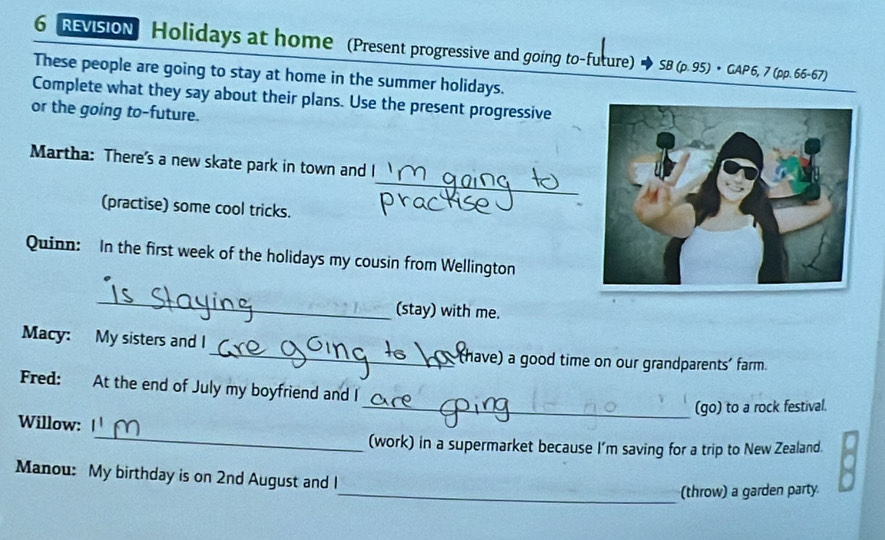 6 REVISION Holidays at home (Present progressive and going to-future) → SB (p. 95) • GAP 6, 7 (pp. 66-67)
These people are going to stay at home in the summer holidays.
Complete what they say about their plans. Use the present progressive
or the going to-future.
Martha: There's a new skate park in town and I 'm going to
(practise) some cool tricks. practise
Quinn: In the first week of the holidays my cousin from Wellington
is staying (stay) with me.
Macy: My sisters and I are going to have (have) a good time on our grandparents' farm.
Fred: At the end of July my boyfriend and I are going (go) to a rock festival.
Willow: I'm (work) in a supermarket because I'm saving for a trip to New Zealand.
Manou: My birthday is on 2nd August and I (throw) a garden party.